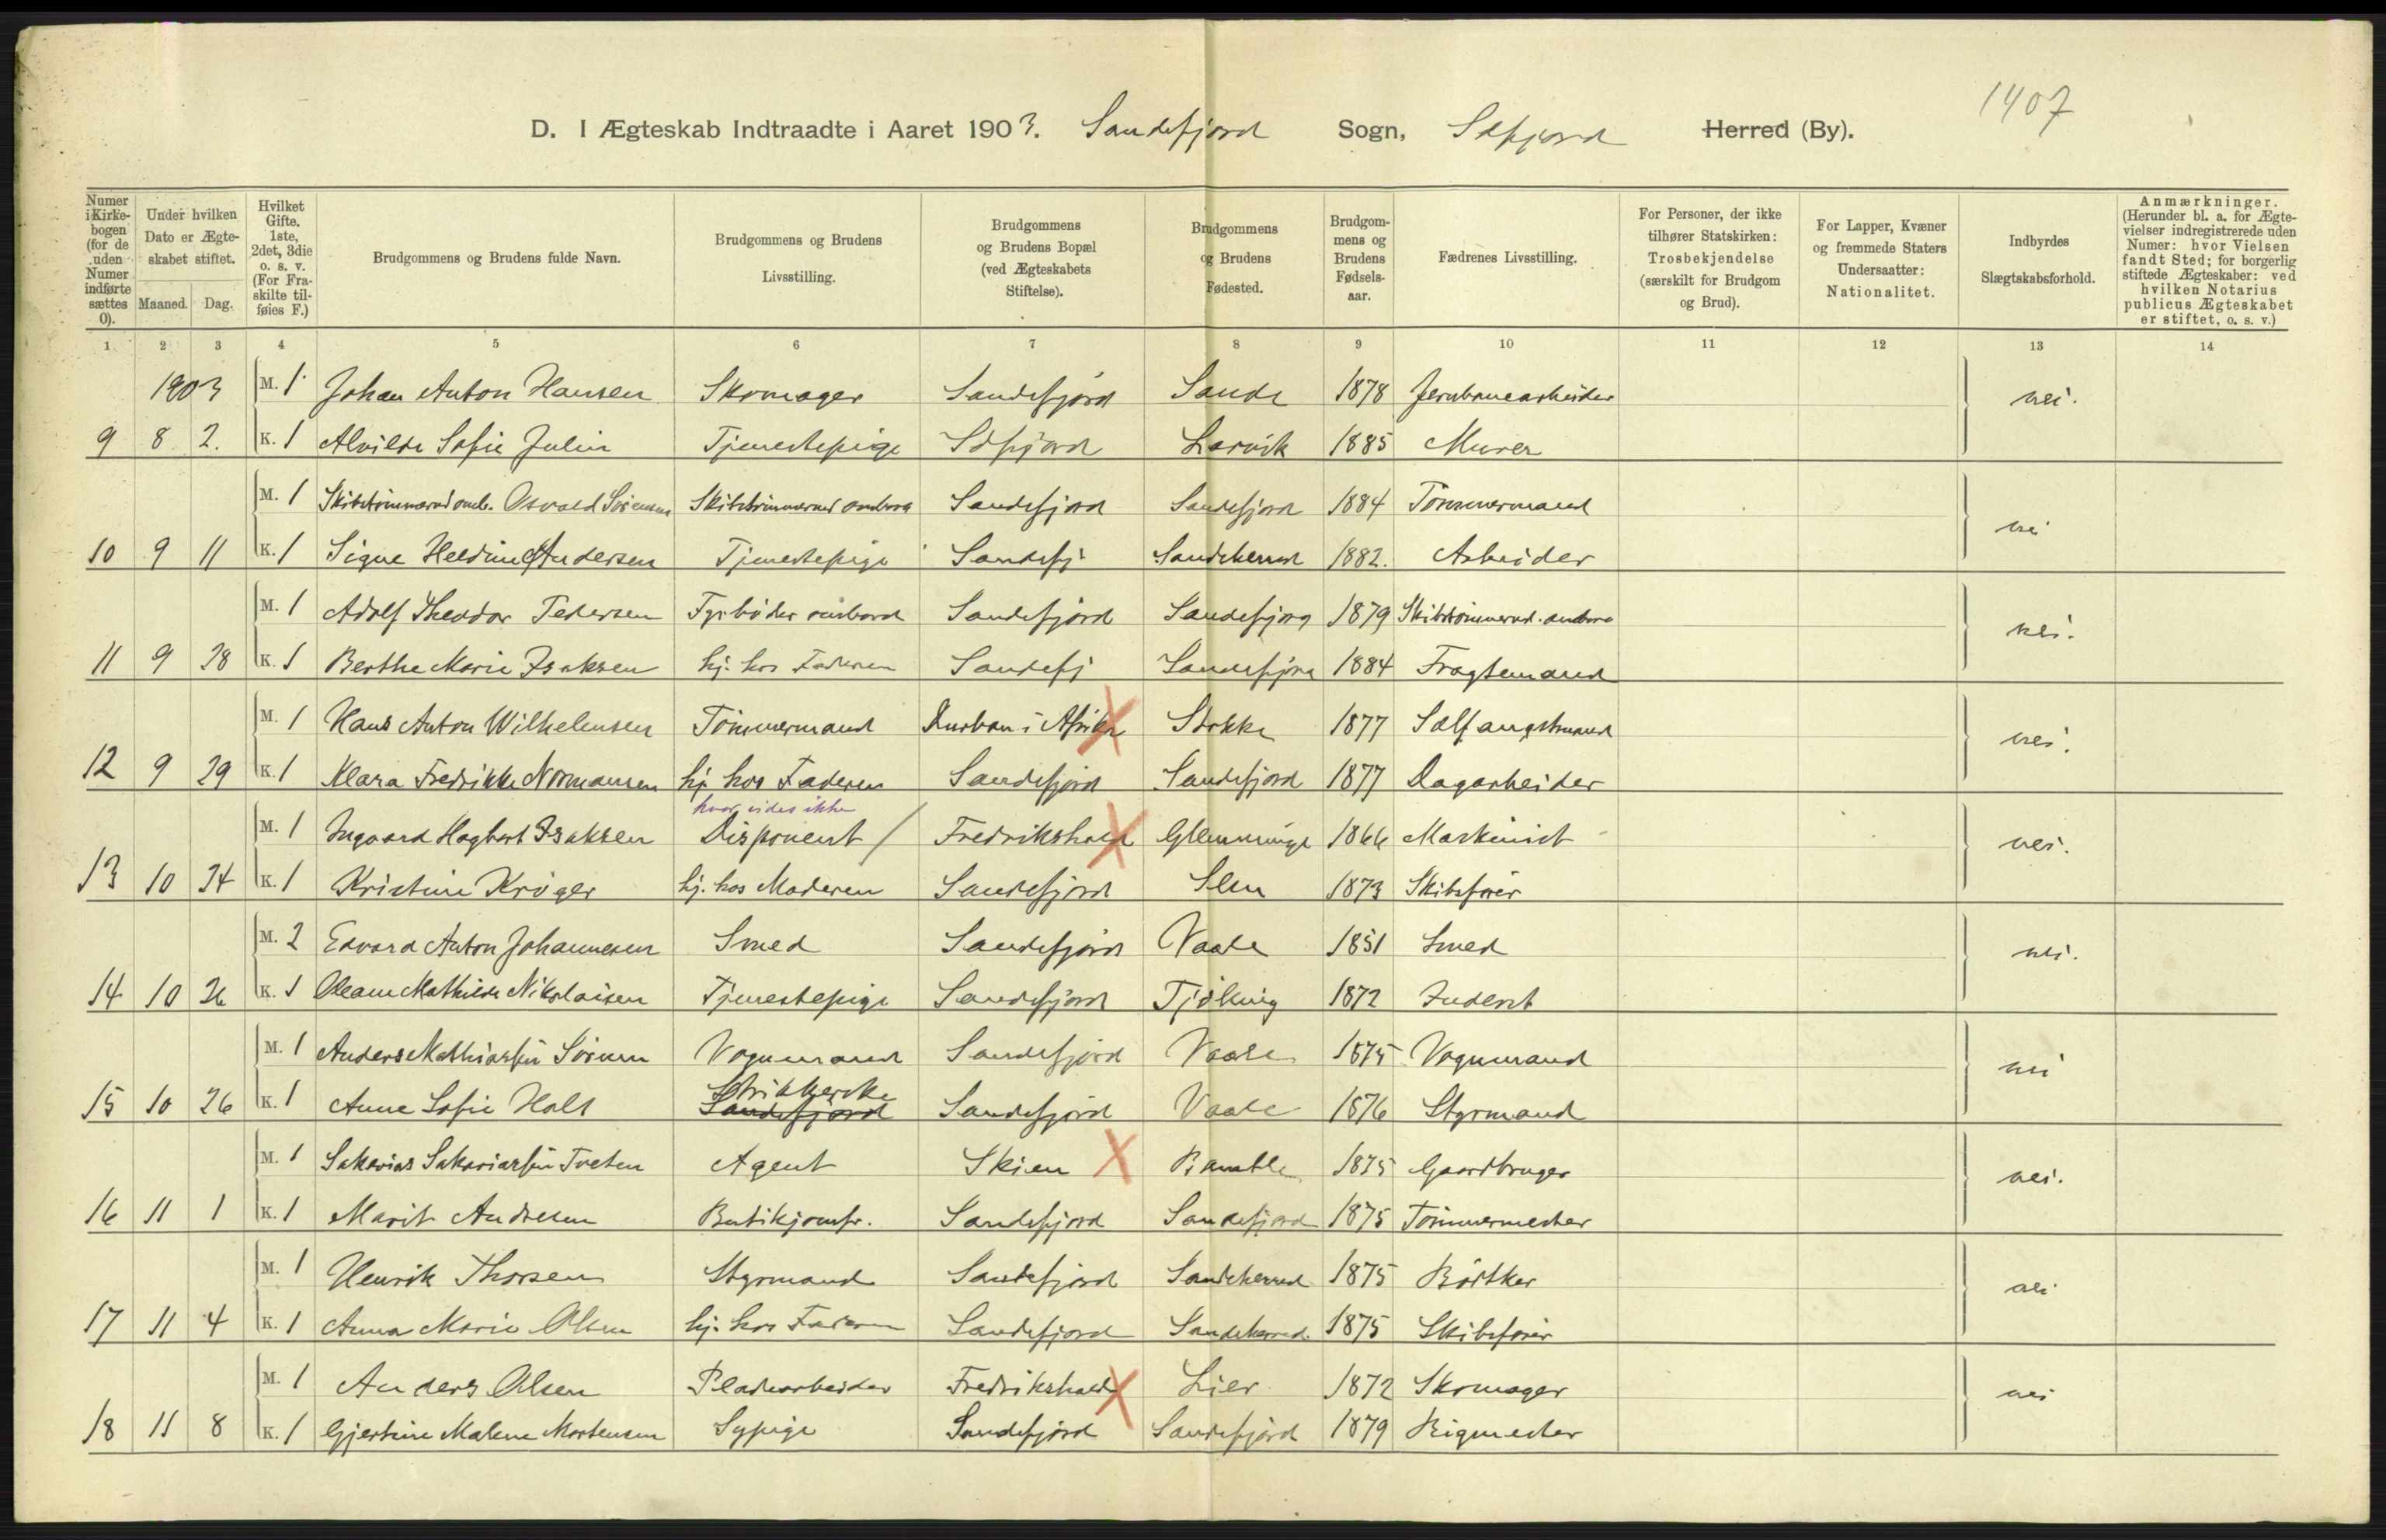 1407
D. I Ægteskab Indtraadte i Aaret 1903. Sandefjord Sogn, Sdfjord Herred (By).
Numer i Kirkebogen (for de uden Numer indførte sættes 0). Under hvilken Dato er Ægteskabet stiftet. Maaned. Dag. Hvilket Gifte. 1ste, 2det, 3die o. s. v. (For Fraskilte tilføies F.) Brudgommens og Brudens fulde Navn. Brudgommens og Brudens Livsstilling. Brudgommens og Brudens Bopæl (ved Ægteskabets Stiftelse). Brudgommens og Brudens Fødested. Brudgommens og Brudens Fødselsaar. Fædrenes Livsstilling. For Personer, der ikke tilhører Statskirken: Trosbekjendelse (særskilt for Brudgom og Brud). For Lapper, Kvæner og fremmede Staters Undersaatter: Nationalitet. Indbyrdes Slægtskabsforhold. Anmærkninger. (Herunder bl. a. for Ægtevielser indregistrerede uden Numer: hvor Vielsen fandt Sted; for borgerlig stiftede Ægteskaber: ved hvilken Notarius publicus Ægteskabet er stiftet, o. s. v.)
1 2 3 4 5 6 7 8 9 10 11 12 13 14
1903 M. 1 Johan Anton Hansen Skomager Sandefjord Sande 1878 Jernbanearbeider nei.
9 8 2. K. 1 Alvilde Sofie Julin Tjenestepige Sdfjord Larvik 1885 Murer
M. 1 Skibstømmermd omb. Osvald Sørensen Skibstømmermd ombord Sandefjord Sandefjord 1884 Tømmermand nei
10 9 11 K. 1 Signe Heldine Andersen Tjenestepige Sandefj Sandeherred 1882. Arbeider
M. 1 Adolf Theodor Pedersen Fyrbøder ombord Sandefjord Sandefjord 1879 Skibstømmermd. ombord nei.
11 9 28 K. 1 Berthe Marie Isaksen hj. hos Faderen Sandefj Sandefjord 1884 Fragtemand
M. 1 Hans Anton Wilhelmsen Tømmermand Durban i Afrika Stokke 1877 Sælfangstmand nei.
12 9 29 K. 1 Klara Fredrikke Normansen hj. hos Faderen Sandefjord Sandefjord 1877 Dagarbeider
hvor vides ikke
M. 1 Ingvard Hagbart Isaksen Disponent / Fredrikshald Glemminge 1866 Maskinist nei.
13 10 24 K. 1 Kristine Krøger hj. hos Moderen Sandefjord Slen 1873 Skibsfører
M. 2 Edvard Anton Johannesen Smed Sandefjord Vaale 1851 Smed nei.
14 10 26 K. 1 Oleane Mathilde Nikolaisen Tjenestepige Sandefjord Tjølling 1872 Inderst
M. 1 Anders Mathiassøn Sørum Vognmand Sandefjord Vaale 1875 Vognmand nei
Strikkerske
15 10 26 K. 1 Anne Sofie Holt Sandefjord Sandefjord Vaale 1876 Styrmand
M. 1 Sakarias Sakariassøn Tveten Agent Skien Bamble 1875 Gaardbruger nei.
16 11 1 K. 1 Marit Andresen Butikjomfr. Sandefjord Sandefjord 1875 Tømmermester
M. 1 Henrik Thorsen Styrmand Sandefjord Sandeherred 1875 Bødtker nei
17 11 4 K. 1 Anna Marie Olsen hj. hos Faderen Sandefjord Sandeherred. 1875 Skibsfører
M. 1 Anders Olsen Pladearbeider Fredrikshald Lier 1872 Skomager nei
18 11 8 K. 1 Gjertine Malene Mortensen Sypige Sandefjord Sandefjord 1879 Rigmester